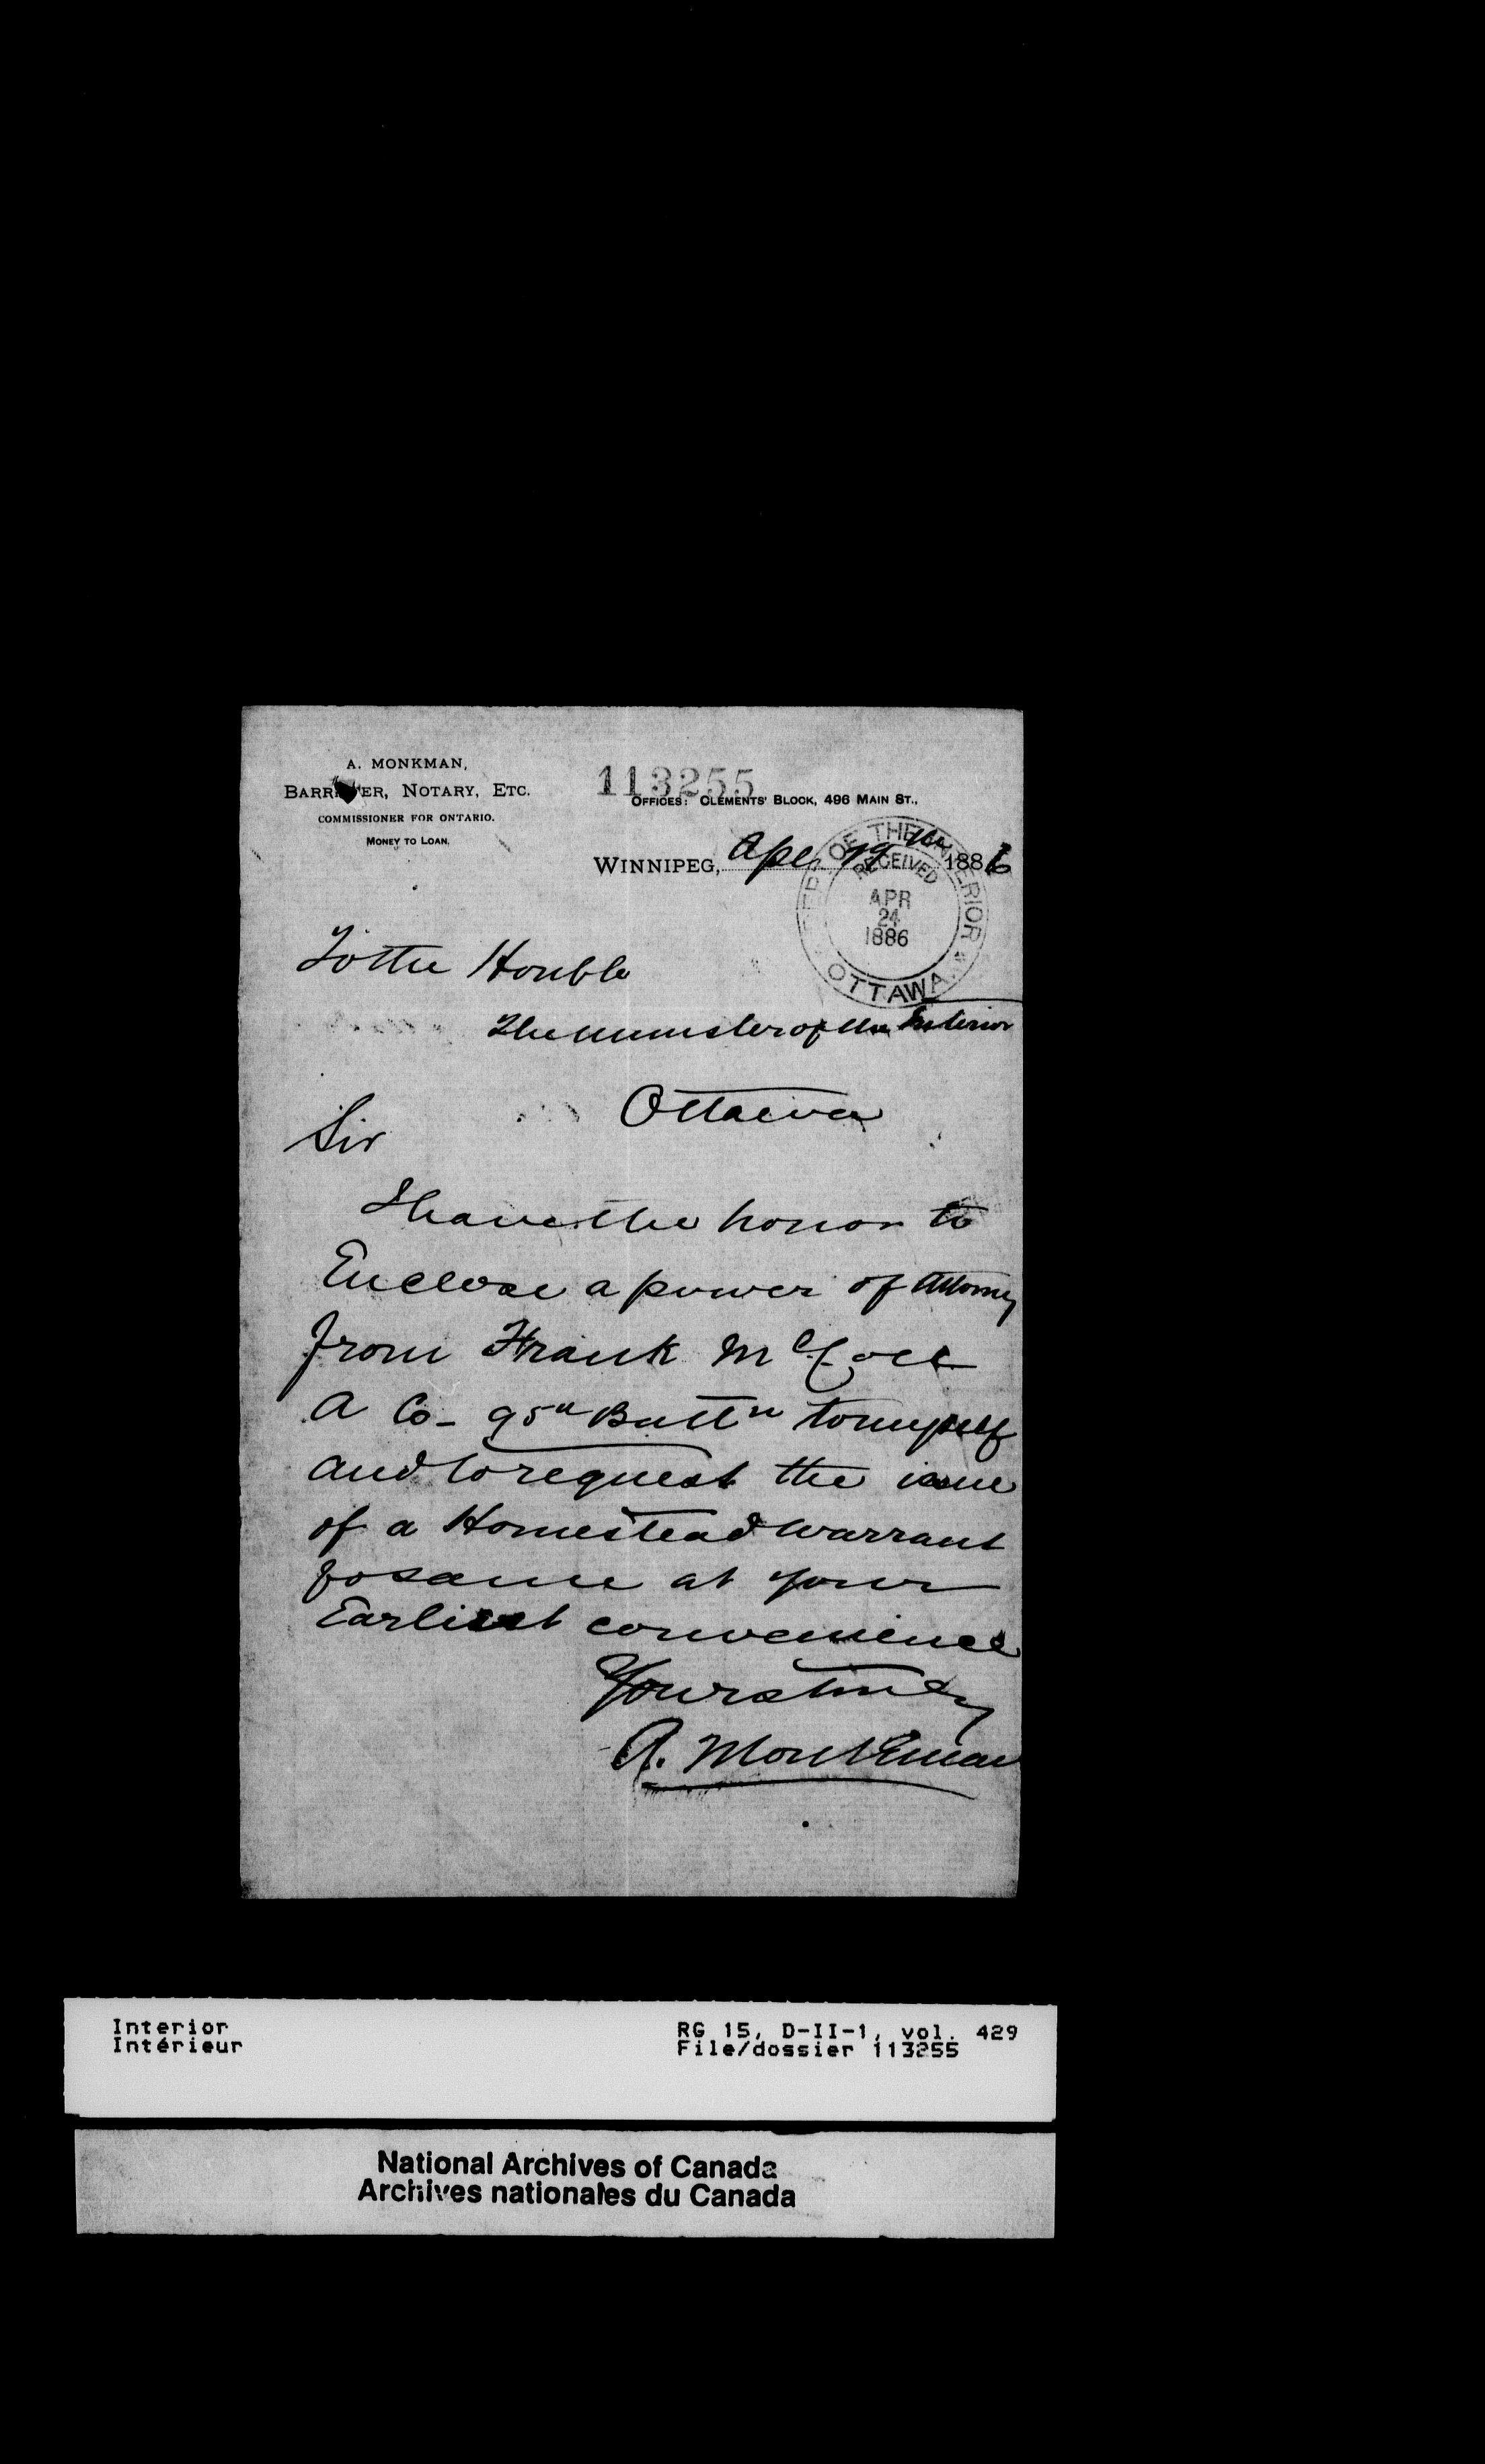 A. MONKMAN,
BARRISTER, NOTARY, ETC.
COMMISSIONER FOR ONTARIO.
MONEY TO LOAN.
113255
OFFICES: CLEMENTS' BLOCK, 496 MAIN ST.,
WINNIPEG, Apl 19th 1886
DEPT OF THE INTERIOR
RECEIVED
APR
24
1886
OTTAWA
To the Honble
The Minister of the Interior
Ottawa
Sir
I have the honor to
Enclose a power of Attorney
from Frank
A Co- 95th Battn to myself
and to request the issue
of a Homestead warrant
for same at your
Earliest convenience
Yours truly
A. Monkman
Interior
Intérieur
RG 15, D-II-1, vol. 429
File/dossier 113255
National Archives of Canada
Archives nationales du Canada